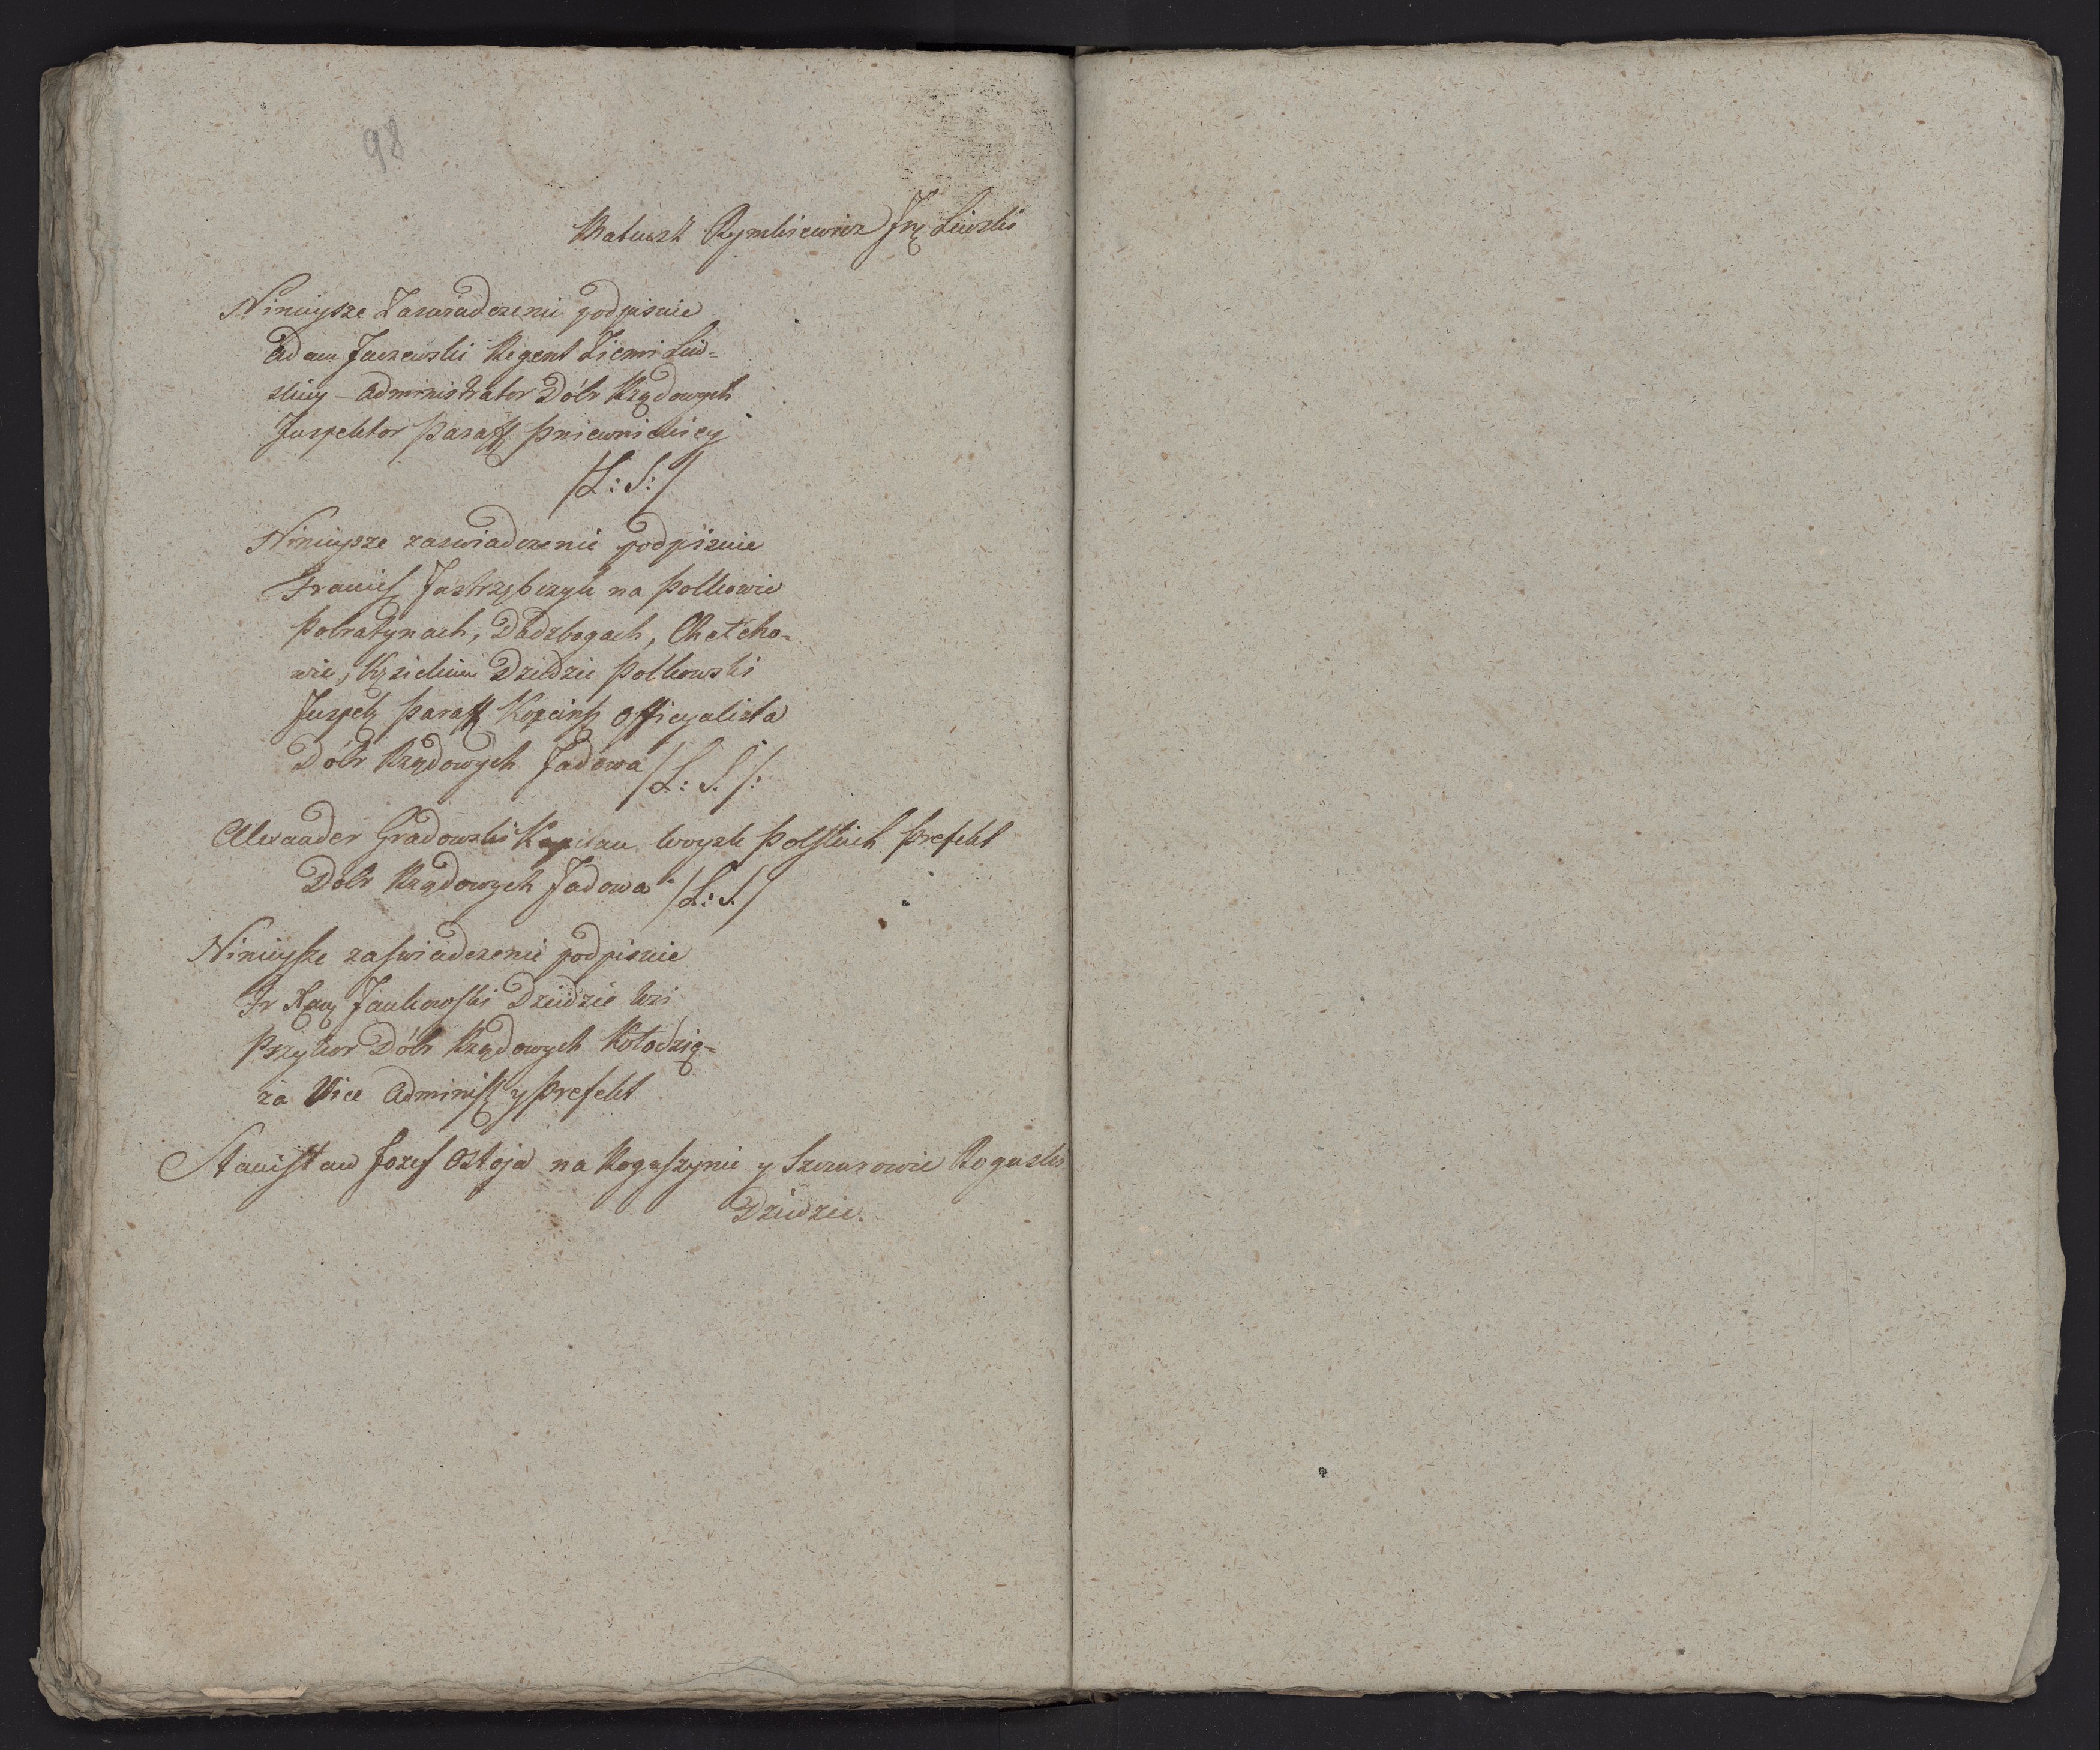 98
Mateusz Rymkiewicz Jrz Liwski
Ninieysze Zaswiadczenie podpisuie
Adam Jaczewski Regent Ziemi Liw-
skiey - Administrator Dóbr Rządowych
Inspektor Paraff Pniewnickiey
/L: S:/
Ninieysze zaswiadczenie podpisuie
Franciſ Jastrzębczyk na Polkowie
Pobratynach, Dadzbogach, Chełcho-
wie, Dziedzic Polkowski
Inspek Paraff Kopciń Officyalista
Dóbr Rządowych Jadowa /L: S. /:
Alexander Gradowski Kapitan Woysk Polſkich Prefekt
Dobr Rządowych Jadowa /L: S./
Ninieyſze zaſwiadczenie podpisuie
Fr Xaw Jankowſki Dziedzic Wsi
Przykor Dóbr Rządowych Kołodzią-
za Vice Adminiſt y Prefekt
Staniſław Jozef Ostoja na Rogaſzynie y Szczurowie Roguski
Dziedzic.